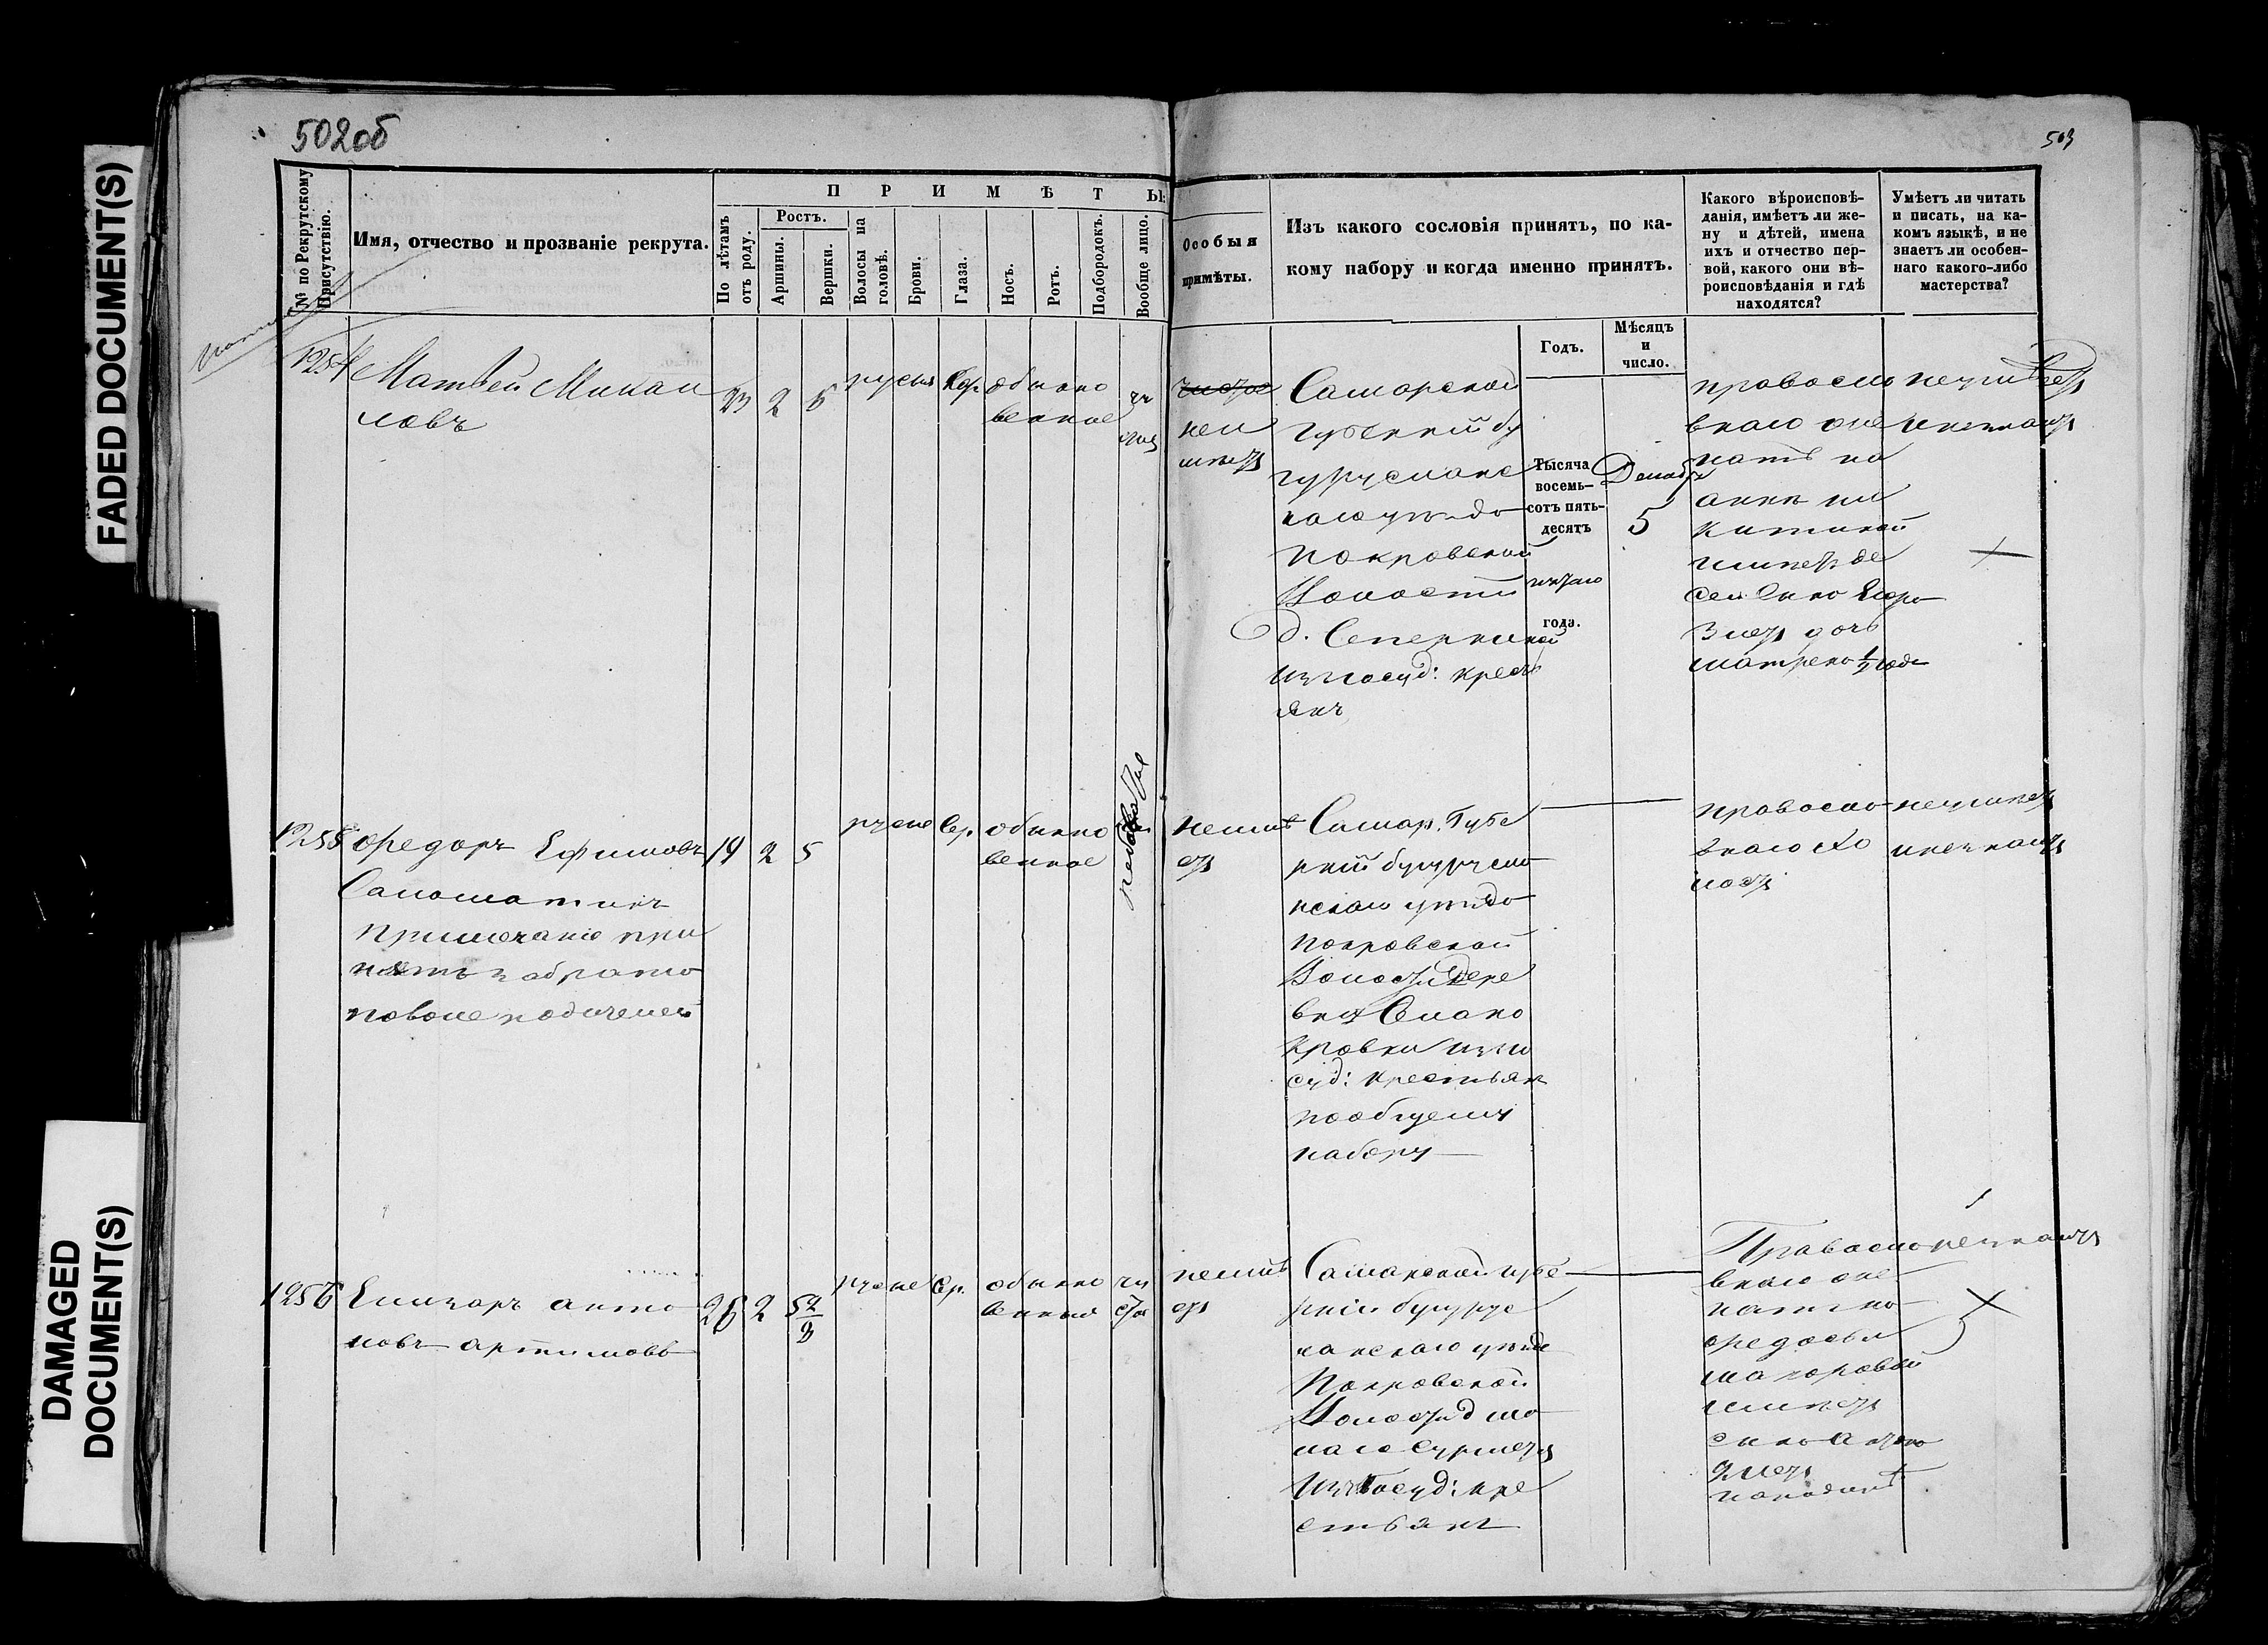 502об
503
FADED DOCUMENT(S)
DAMAGED
DOCUMENT(S)
№ по Рекрутскому
Присутствію.
Имя, отчество и прозваніе рекрута.
ПРИМѢТЫ:
По лѣтамъ
отъ роду.
Ростъ.
Аршины.
Вершки.
Волосы на
головѣ.
Брови.
Глаза.
Носъ.
Ротъ.
Подбородокъ.
Вообще лицо.
Особыя
примѣты.
Изъ какого сословія принятъ, по ка-
кому набору и когда именно принятъ.
Годъ.
Мѣсяцъ
и
число.
Какого вѣроисповѣ-
данія, имѣетъ ли же-
ну и дѣтей, имена
ихъ и отчество пер-
вой, какого они вѣ-
роисповѣданія и гдѣ
находятся?
Умѣетъ ли читать
и писать, на ка-
комъ языкѣ, и не
знаетъ ли особен-
наго какого-либо
мастерства?
1254
Матвей Михаи
ловъ
23
2
русыя
обыкно
венное
неи
мѣетъ
Самарской
губерніи бу
гурусланс
каго уѣзда
Покровской
Волости
д.
из госуд: крест
янъ
Тысяча
восемь-
сотъ пять-
десятъ
пятаго
года.
Декабря
5
правосла
внаго же
натъ на
аннѣ ни
китиной
имѣетъ де
дочь
матрена 1/2 года
1255
Федоръ Ефимовъ
примечаніе при
нятъ за брата
19
2
5
русые
Сер.
обыкно
венное
неимѣ
етъ
Самар. Губе
рніи бугурусла
нскаго уѣзда
покровской
Волости Дере
вни
суд: крестьян
пообщему
набору
правосла
внаго хо
лостъ
неумѣетъ
и незнаетъ
1256
Елизаръ анто
новъ
26
2
русые
Сер.
обыкно
венныя
чи
стое
неимѣ
етъ
Самарской губе
рніи бугурус
ланскаго уѣзда
Покровской
Волости д ма
лаго
изъ Госуд: кре
стьянъ
Правосла
внаго же
натъ на
федосьи
имѣетъ
сына
незнаетъ